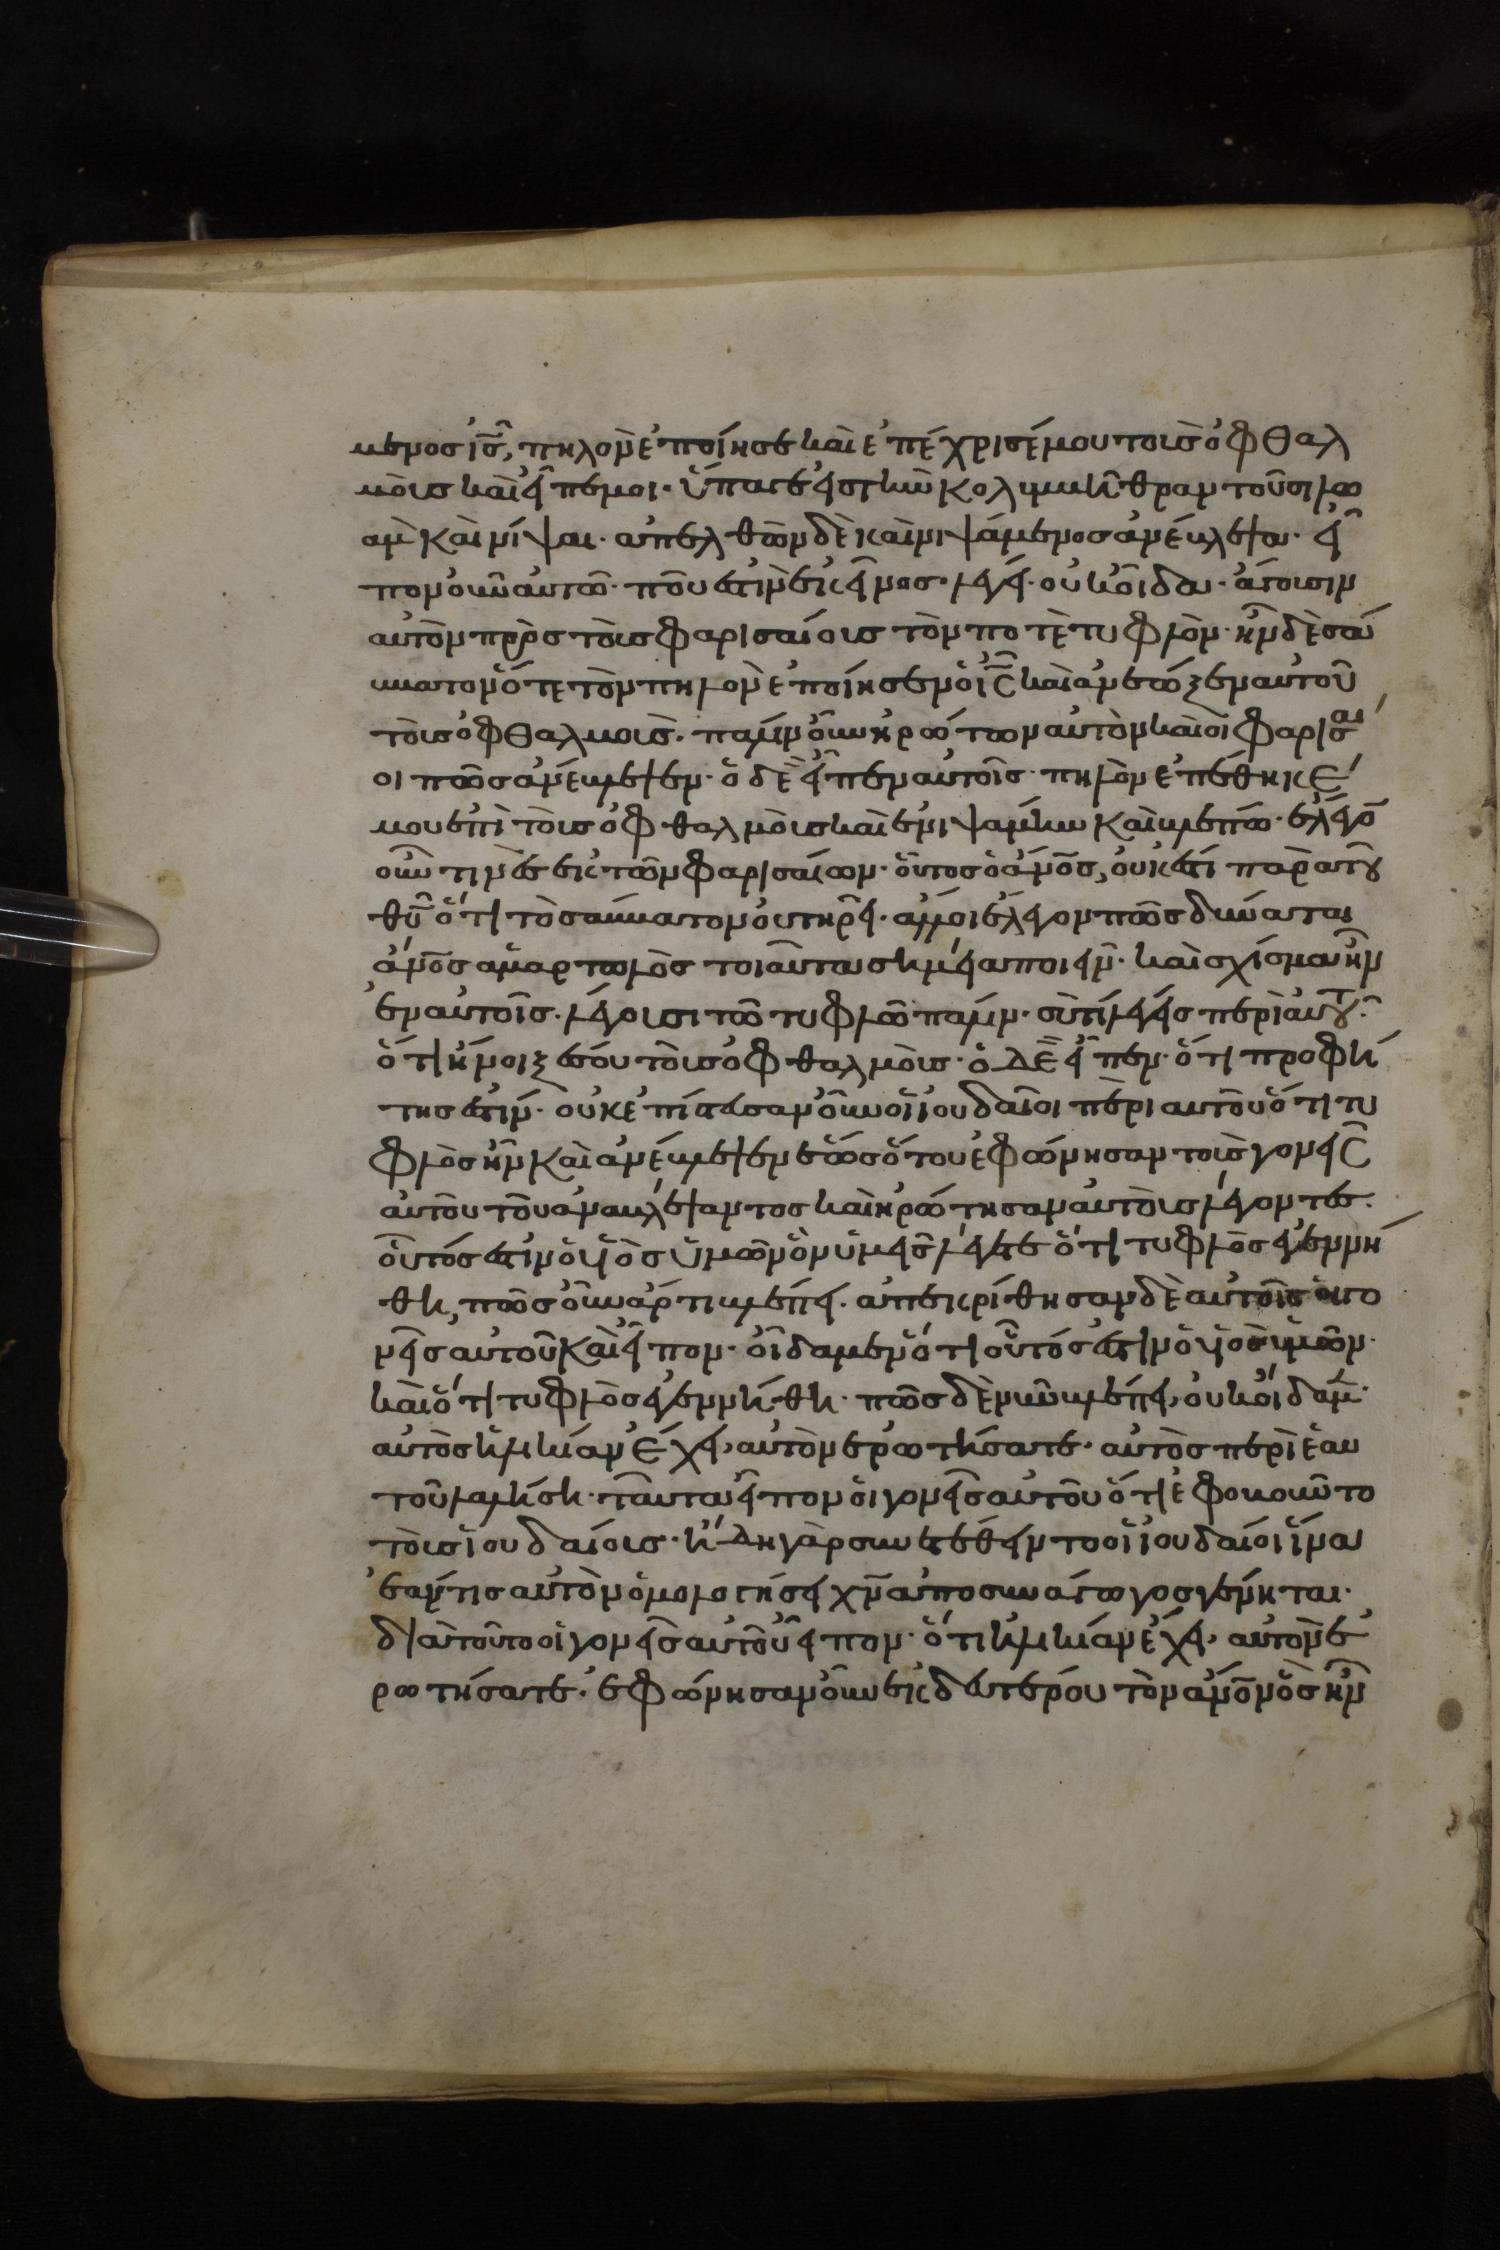 μενος ι̅ς̅, πηλὸν ἐποίησε καὶ ἐπέχρισέ μου τοὺς ὀφθαλ
μοὺς καὶ εἶπεν μοι· ὕπαγε εἰς τὴν κολυμβήθραν τοῦ σιλω
ὰμ καὶ νίψαι· ἀπελθὼν δὲ καὶ νιψάμενος ἀνέβλεψα· εἶ
πον οὖν αὐτῶ· ποῦ ἐστὶν ἐκεῖνος· λέγει· οὐκ οἶδα· ἄγουσιν
αὐτὸν πρὸς τοὺς φαρισαίους τὸν ποτὲ τυφλὸν· ἦν δὲ σάβ
βατον ὅτε τὸν πηλὸν ἐποίησεν ὁ ι̅ς̅ καὶ ἀνέωξεν αὐτοῦ
τοὺς ὀφθαλμοὺς. πάλιν οὖν ἠρώτων αὐτὸν καὶ οἱ φαρισαί
οι πῶς ἀνέβλεψεν· ὁ δὲ εἶπεν αὐτοῖς· πηλὸν ἐπέθηκέ
μου ἐπὶ τοὺς ὀφθαλμοὺς καὶ ἐνιψάμην καὶ βλέπω· ἔλεγο̅
οὖν τινὲς ἐκ τῶν φαρισαίων· οὗτος ὁ ἄν̅ο̅ς̅, οὐκ ἔστι παρὰ τοῦ
θ̅υ̅ ὅτι τὸ σάββατον οὐ τηρεῖ. ἄλλοι ἔλεγον πῶς δύναται
ἄν̅ο̅ς̅ ἁμαρτωλὸς τοιαῦτα σημεῖα ποιεῖν· καὶ σχίσμα ἦν
ἐν αὐτοῖς. λέγουσι τῶ τυφλῶ πάλιν· σὺ τί λέγεις περὶ αὐτοῦ·
ὅτι ἤνοιξέ σου τοὺς ὀφθαλμοὺς· ὁ δὲ εἶπεν· ὅτι προφή
της ἐστίν· οὐκ ἐπίστευσαν οὖν οἱ ἰουδαῖοι περὶ αὐτοῦ ὅτι τυ
φλὸς ἦν καὶ ἀνέβλεψεν ἕως ὅτου ἐφώνησαν τοὺς γονεῖς
αὐτοῦ τοῦ ἀναβλέψαντος καὶ ἠρώτησαν αὐτοὺς λέγοντες.
οὗτός ἐστιν ὁ υἱὸς ὑμῶν ὃν ὑμεῖς λέγετε ὅτι τυφλὸς ἐγεννή
θη, πῶς οὖν ἄρτι βλέπει. ἀπεκρίθησαν δὲ αὐτοῖς οἱ γο
νεῖς αὐτοῦ καὶ εἶπον· οἴδαμεν ὅτι οὗτός ἐστιν ὁ υἱὸς ἡμῶν·
καὶ ὅτι τυφλὸς ἐγεννήθη· πῶς δὲ νῦν βλέπει, οὐκ οἴδαμ̅·
αὐτὸς ἡλικίαν ἔχει, αὐτὸν ἐρωτήσατε· αὐτὸς περὶ ἑαυ
τοῦ λαλήση· ταῦτα εἶπον οἱ γονεῖς αὐτοῦ ὅτι ἐφοβοῦντο
τοὺς ἰουδαίους· ἤδη γὰρ συνετέθειντο οἱ ἰουδαίοι ἵνα
ἐάν τις αὐτὸν ὁμολογήσει χ̅ν̅ ἀποσυνάγωγος γένηται·
διὰ τοῦτο οἱ γονεῖς αὐτοῦ εἶπον· ὅτι ἡλικίαν ἔχει, αὐτὸν ἐ
ρωτήσατε· ἐφώνησαν οὖν ἐκ δευτέρου τὸν ἄν̅ο̅ν̅ ὃς ἦν